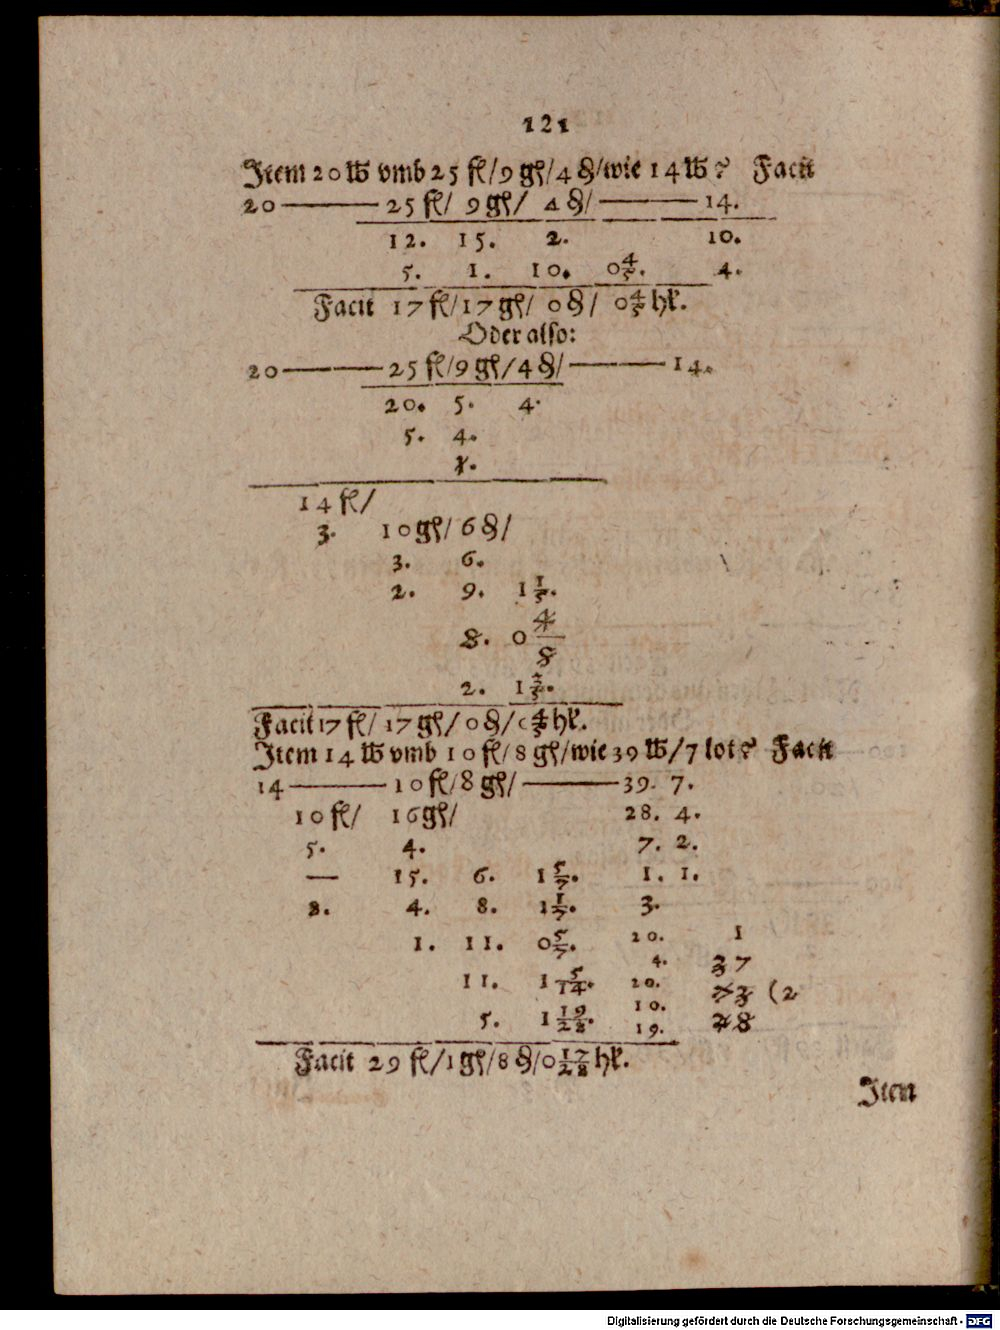 121
Item 20 ℔ vmb 25 fl/9 gſ/4 ₰/wie 14 ℔? Facit
20 ——— 25 fl/ 9 gſ/ 4 ₰/ ——— 14.
12. 15. 2. 10.
5. 1. 10. 0 4/5. 4.
Facit 17 fl/17 gſ/ 0 ₰/ 0 4/5 hl.
Oder alſo:
20 ——— 25 fl/9 gſ/4 ₰/ ——— 14.
20. 5. 4.
5. 4.
1.
14 fl/
3. 10 gſ/ 6 ₰/
3. 6.
2. 9. 1 1/5.
8. 0 4/8
2. 1 3/5.
Facit 17 fl/ 17 gſ/ 0 ₰/ 0 4/5 hl.
Item 14 ℔ vmb 10 fl/ 8 gſ/wie 39 ℔/7 lot? Facit
14 ——— 10 fl/8 gſ/ ——— 39. 7.
10 fl/ 16 gſ/ 28. 4.
5. 4. 7. 2.
— 15. 6. 1 5/7. 1. 1.
8. 4. 8. 1 1/7. 3.
1. 11. 0 5/7. 20. 1
4. 3 7
11. 1 5/14. 20. (2
10.
5. 1 19/28. 19. 2 8
Facit 29 fl/1 gſ/8 ₰/0 17/28 hl.
Item
Digitalisierung gefördert durch die Deutsche Forschungsgemeinschaft - DFG